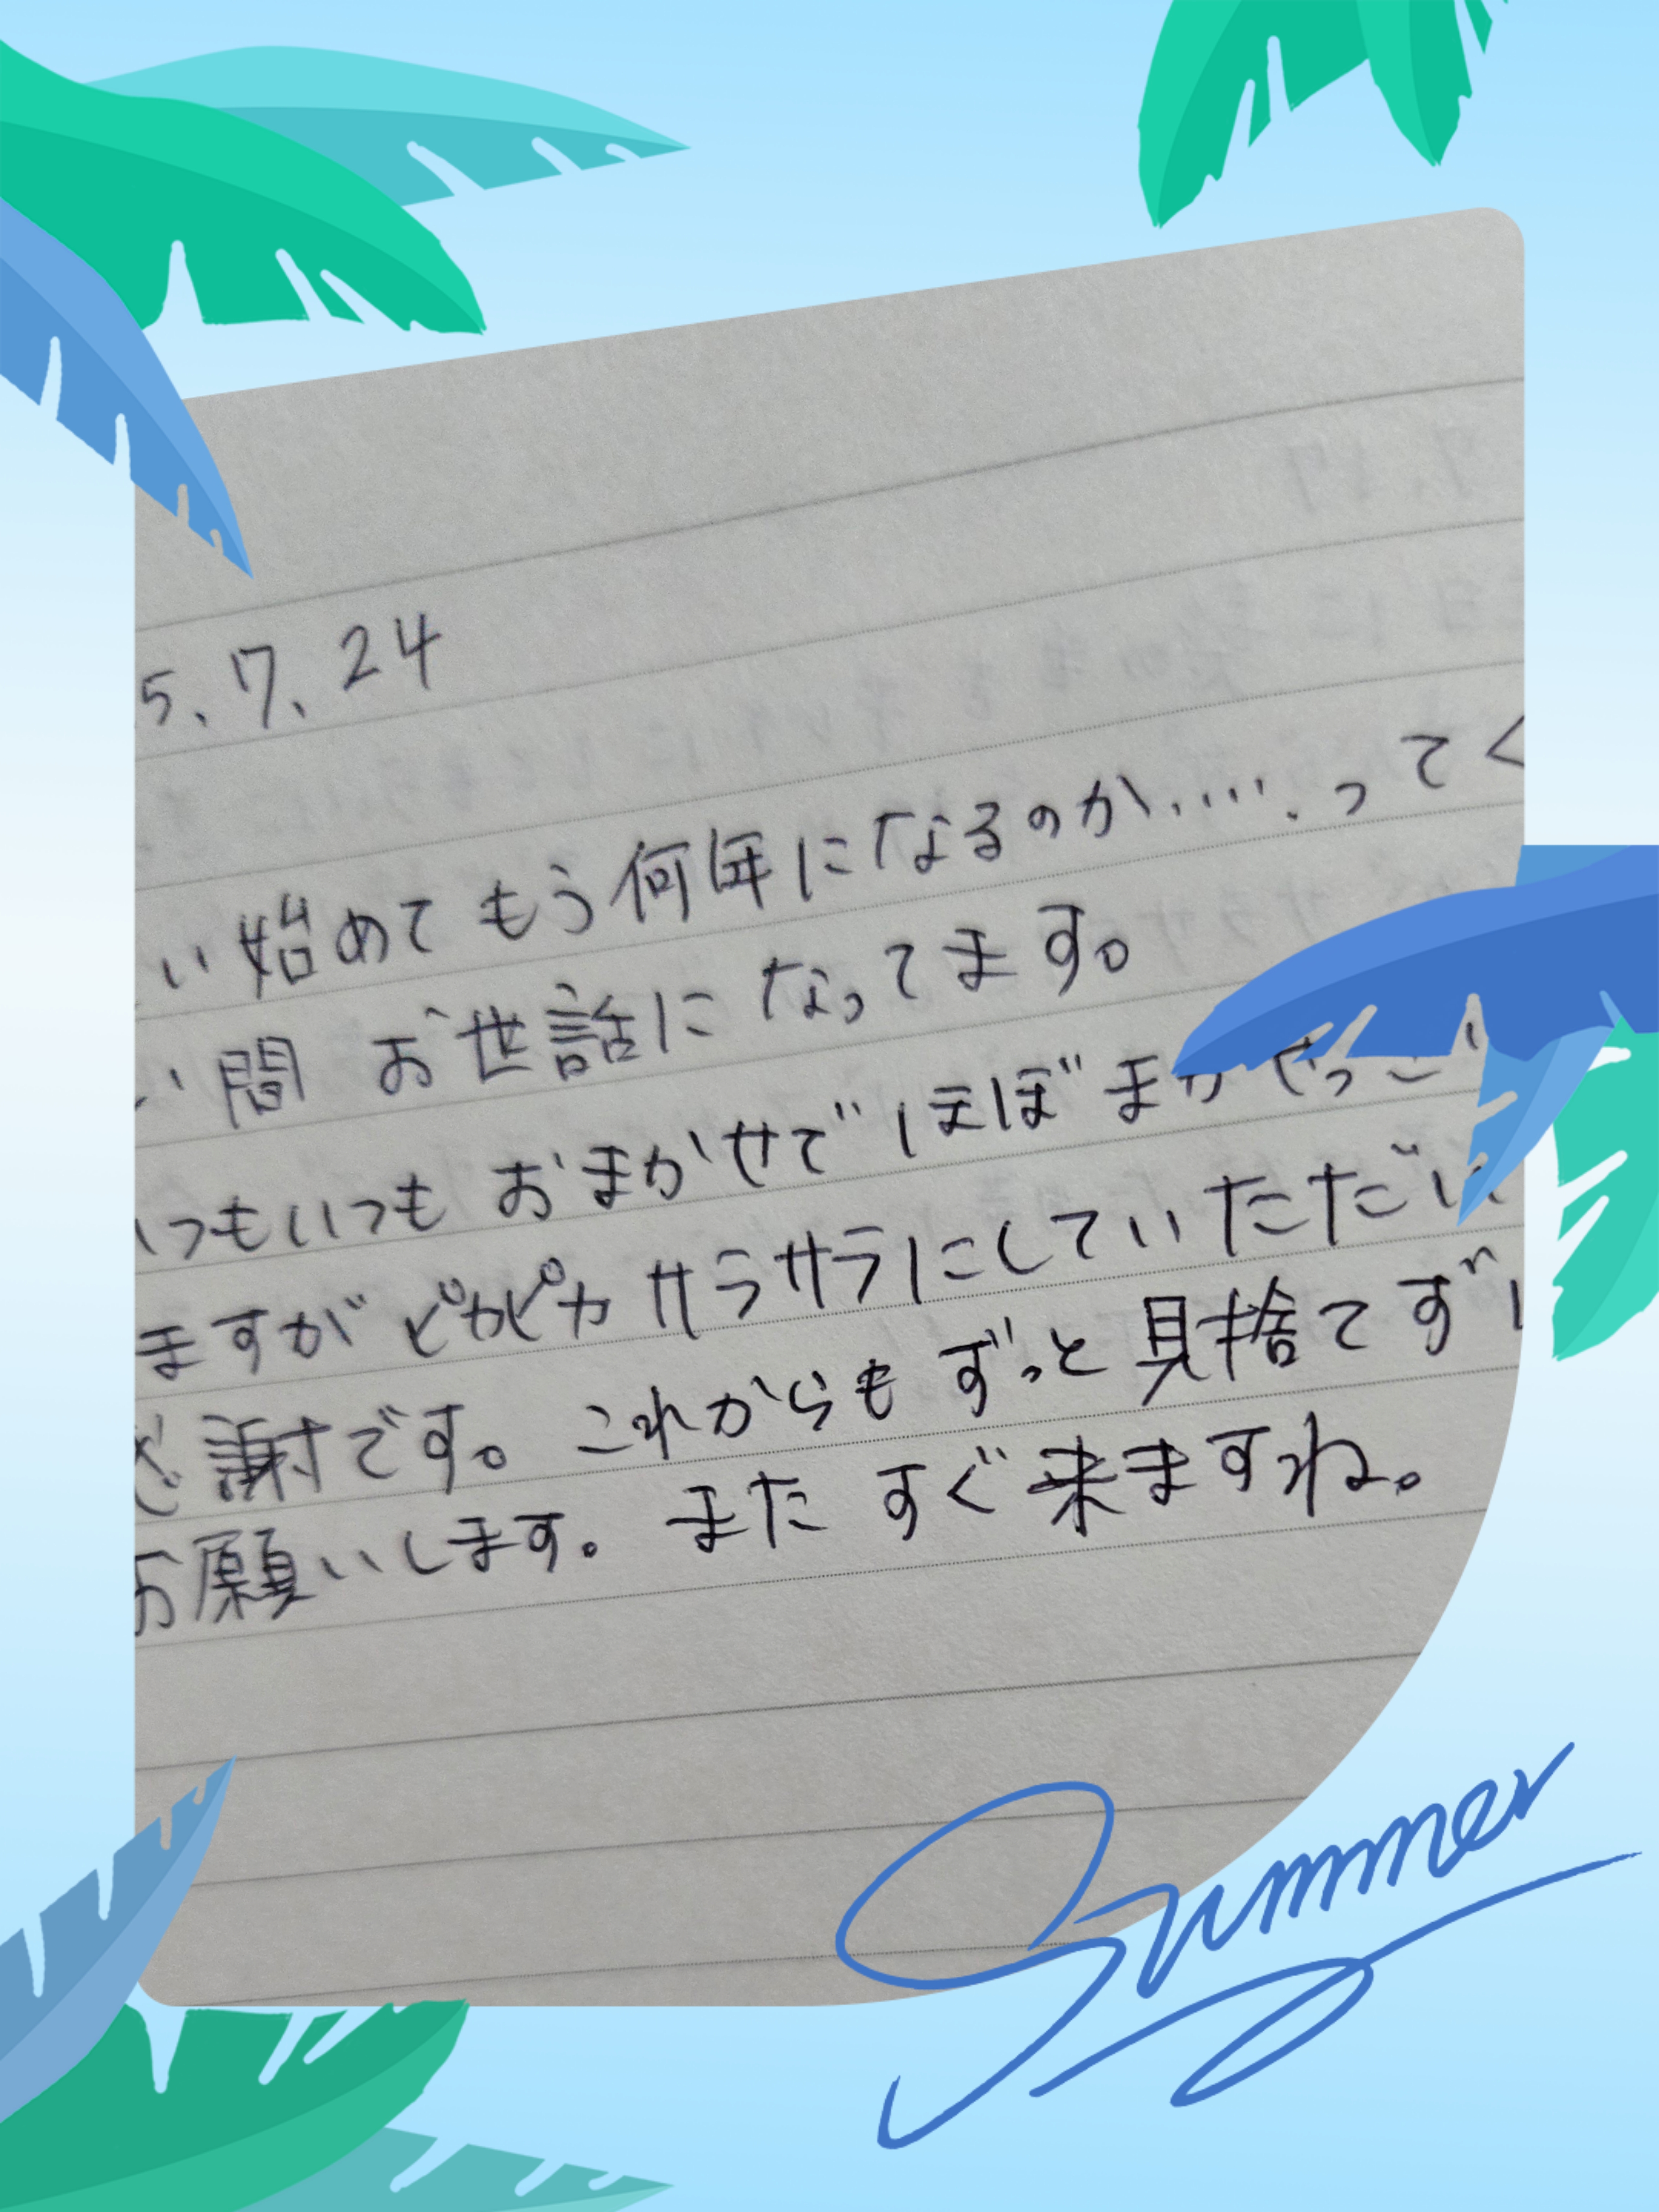 5、7、24
い始めてもう何年になるのか・・・・・ってく
い間 お世話になってます。
いつもいつも おまかせで ほぼ まか
ますが ピカピカ サラサラにしていただい
感謝です。これからも ずっと 見捨てず
お願いします。また すぐ 来ますね。
Summer